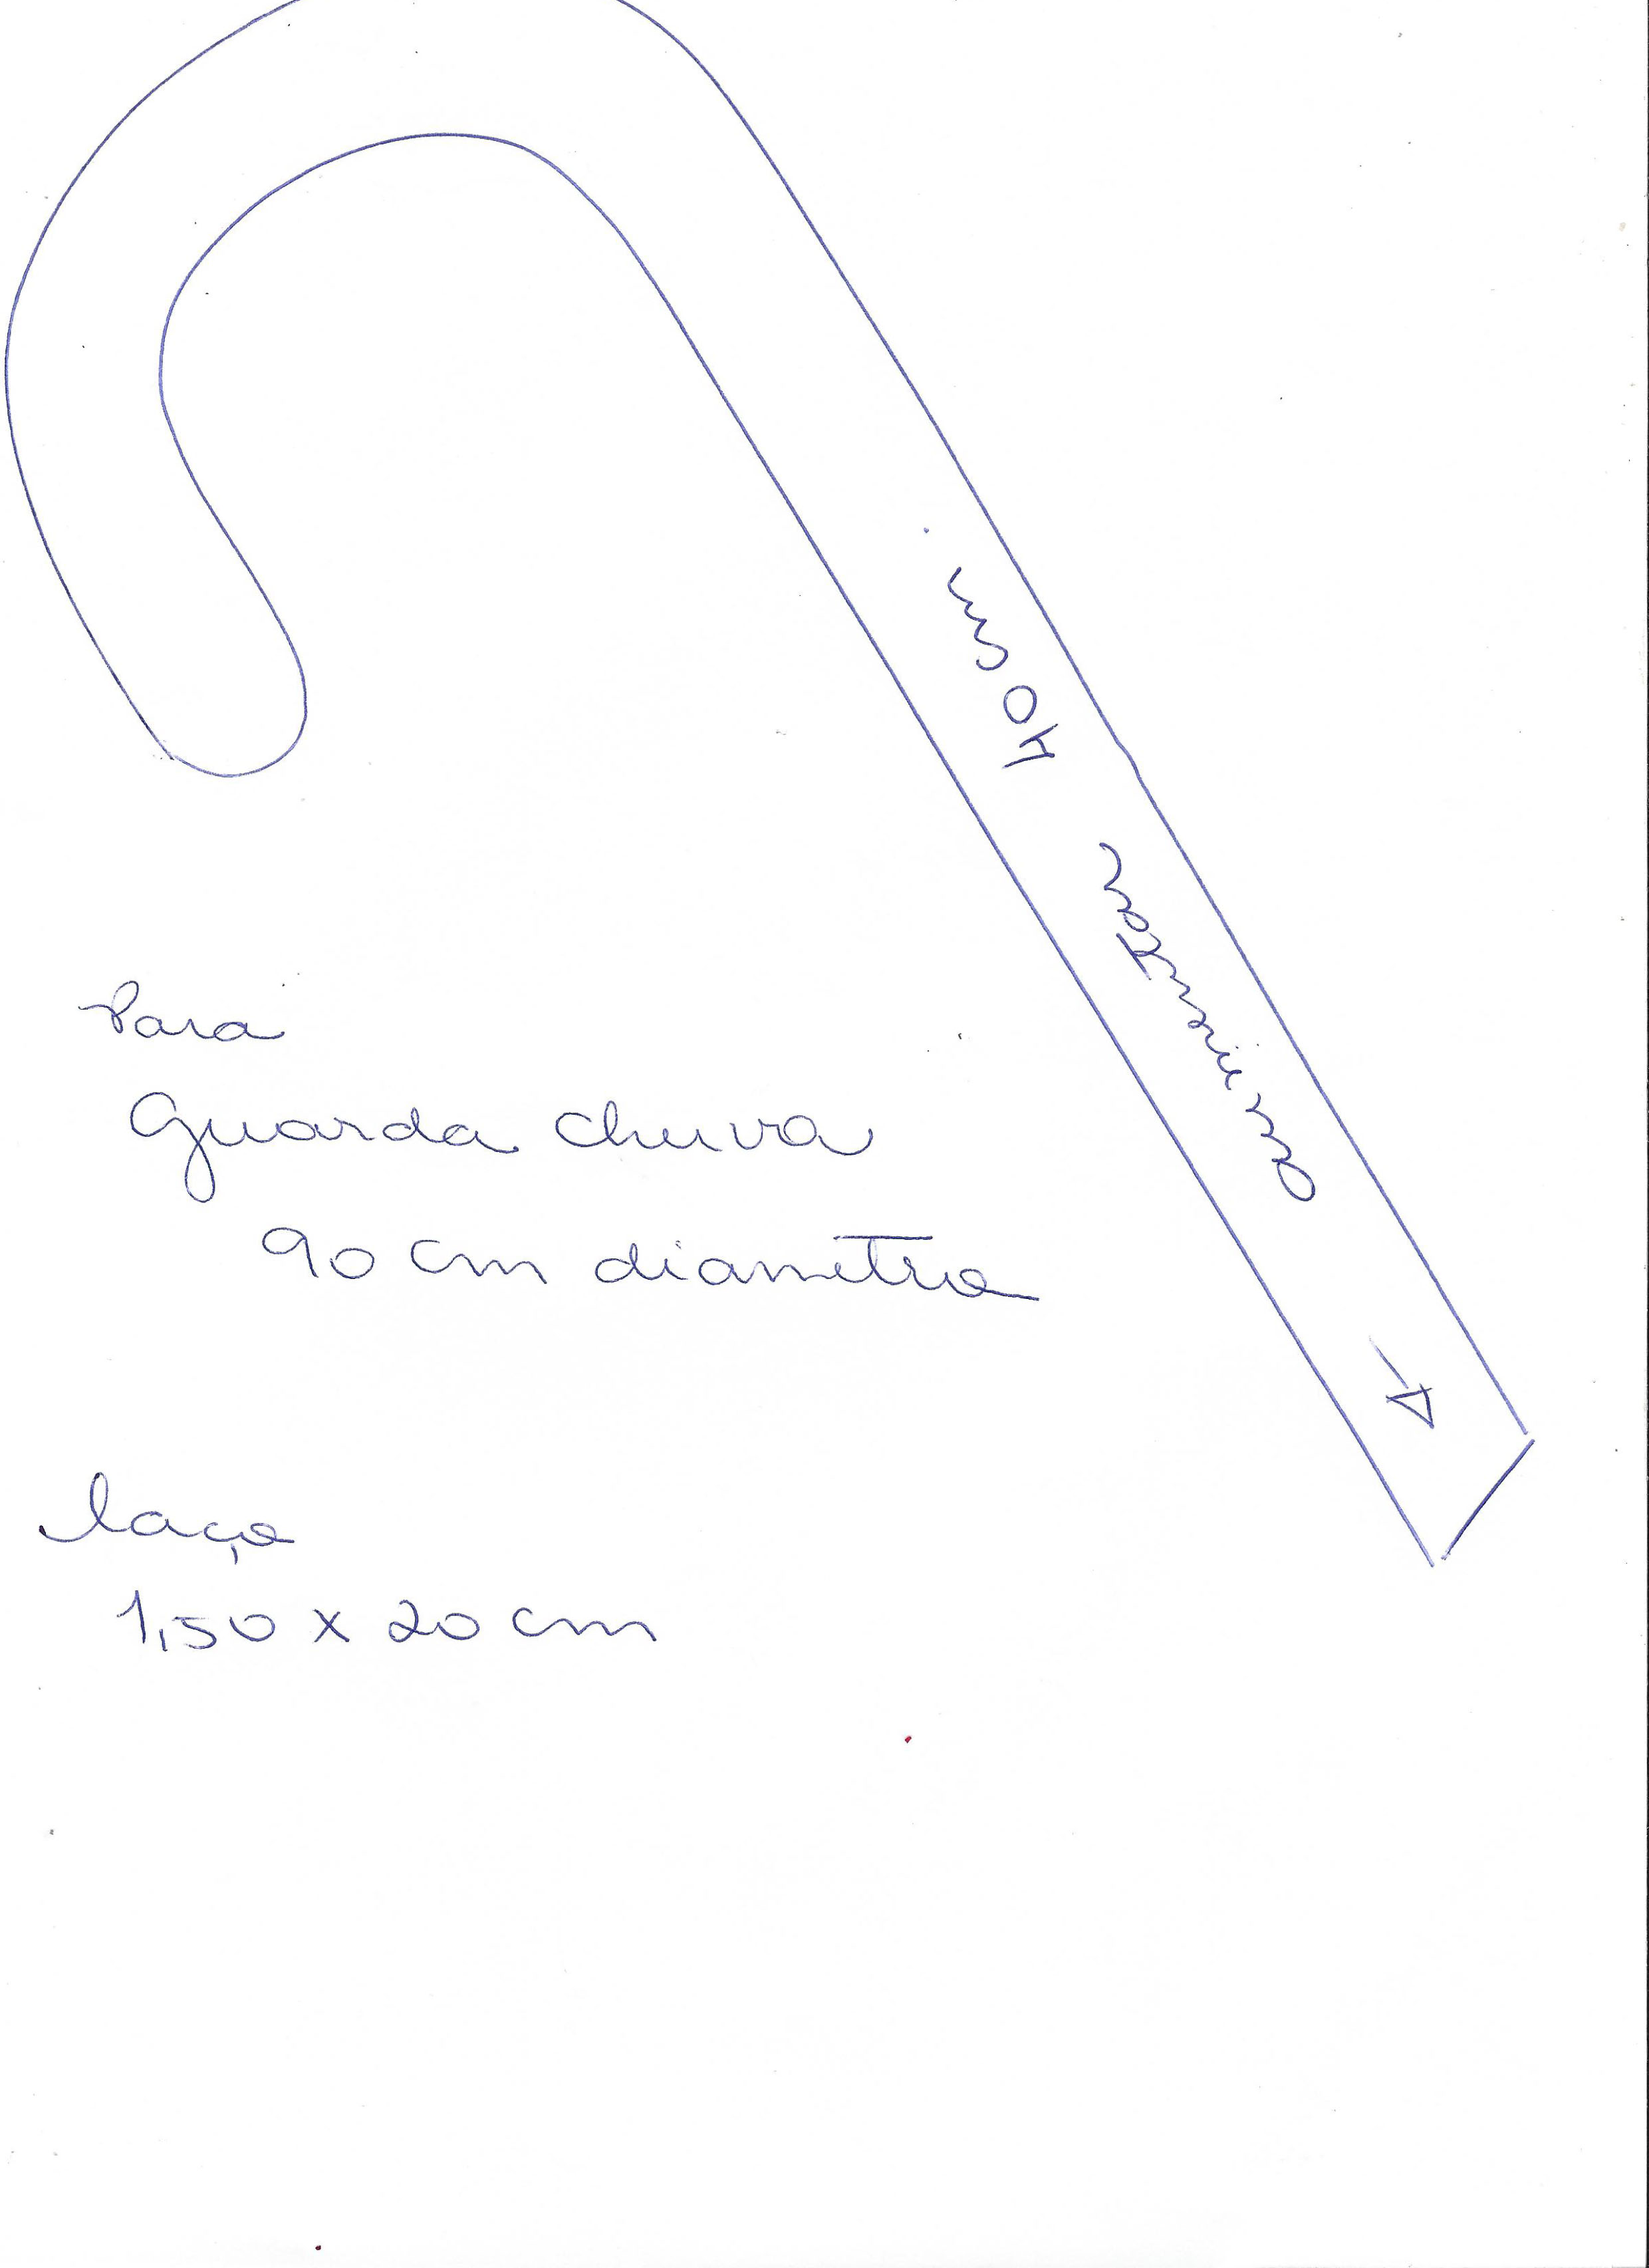 aumentar 40 cm
Para
Guarda chuva
90 cm diametro
laço
1,50 x 20 cm